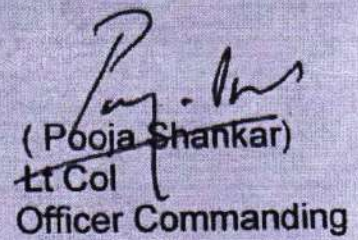 ( Pooja Shankar)
Lt Col
Officer Commanding